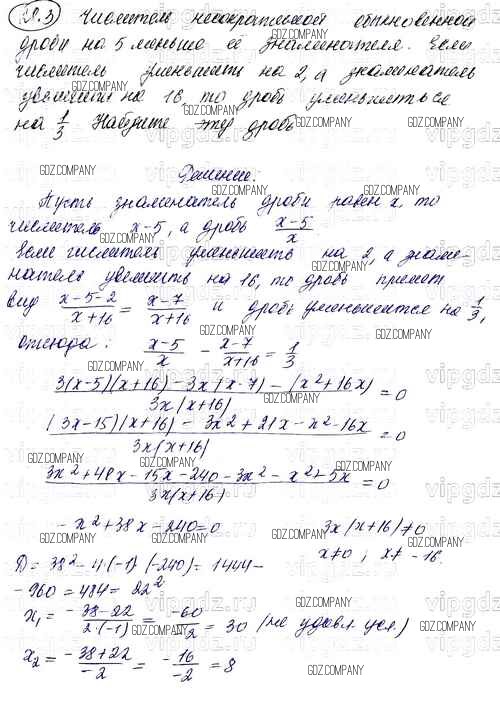 28.3 Числитель несократимой обыкновенной
дроби на 5 меньше её знаменателя. Если
числитель уменьшить на 2, а знаменатель
увеличить на 16, то дробь уменьшиться
на 1/3 Найдите эту дробь
GDZ.COMPANY
Решение.
Пусть знаменатель дроби равен x, то
числитель x-5, а дробь (x-5)/x
Если числитель уменьшить на 2, а знаме-
натель увеличить на 16, то дробь примет
вид (x-5-2)/(x+16) = (x-7)/(x+16) и дробь уменьшится на 1/3,
отсюда: (x-5)/x - (x-7)/(x+16) = 1/3
(3(x-5)(x+16) - 3x(x-7) - (x²+16x))/(3x(x+16)) = 0
((3x-15)(x+16) - 3x²+21x-x²-16x)/(3x(x+16)) = 0
(3x²+48x-15x-240-3x²-x²+5x)/(3x(x+16)) = 0
-x²+38x-240=0 3x(x+16)≠0
Д=38²-4·(-1)·(-240)=1444- x≠0; x≠-16.
-960=484=22²
x₁ = (-38-22)/(2·(-1)) = (-60)/(-2) = 30 (не удовл. усл.)
x₂ = (-38+22)/(-2) = (-16)/(-2) = 8
vipgdz.ru